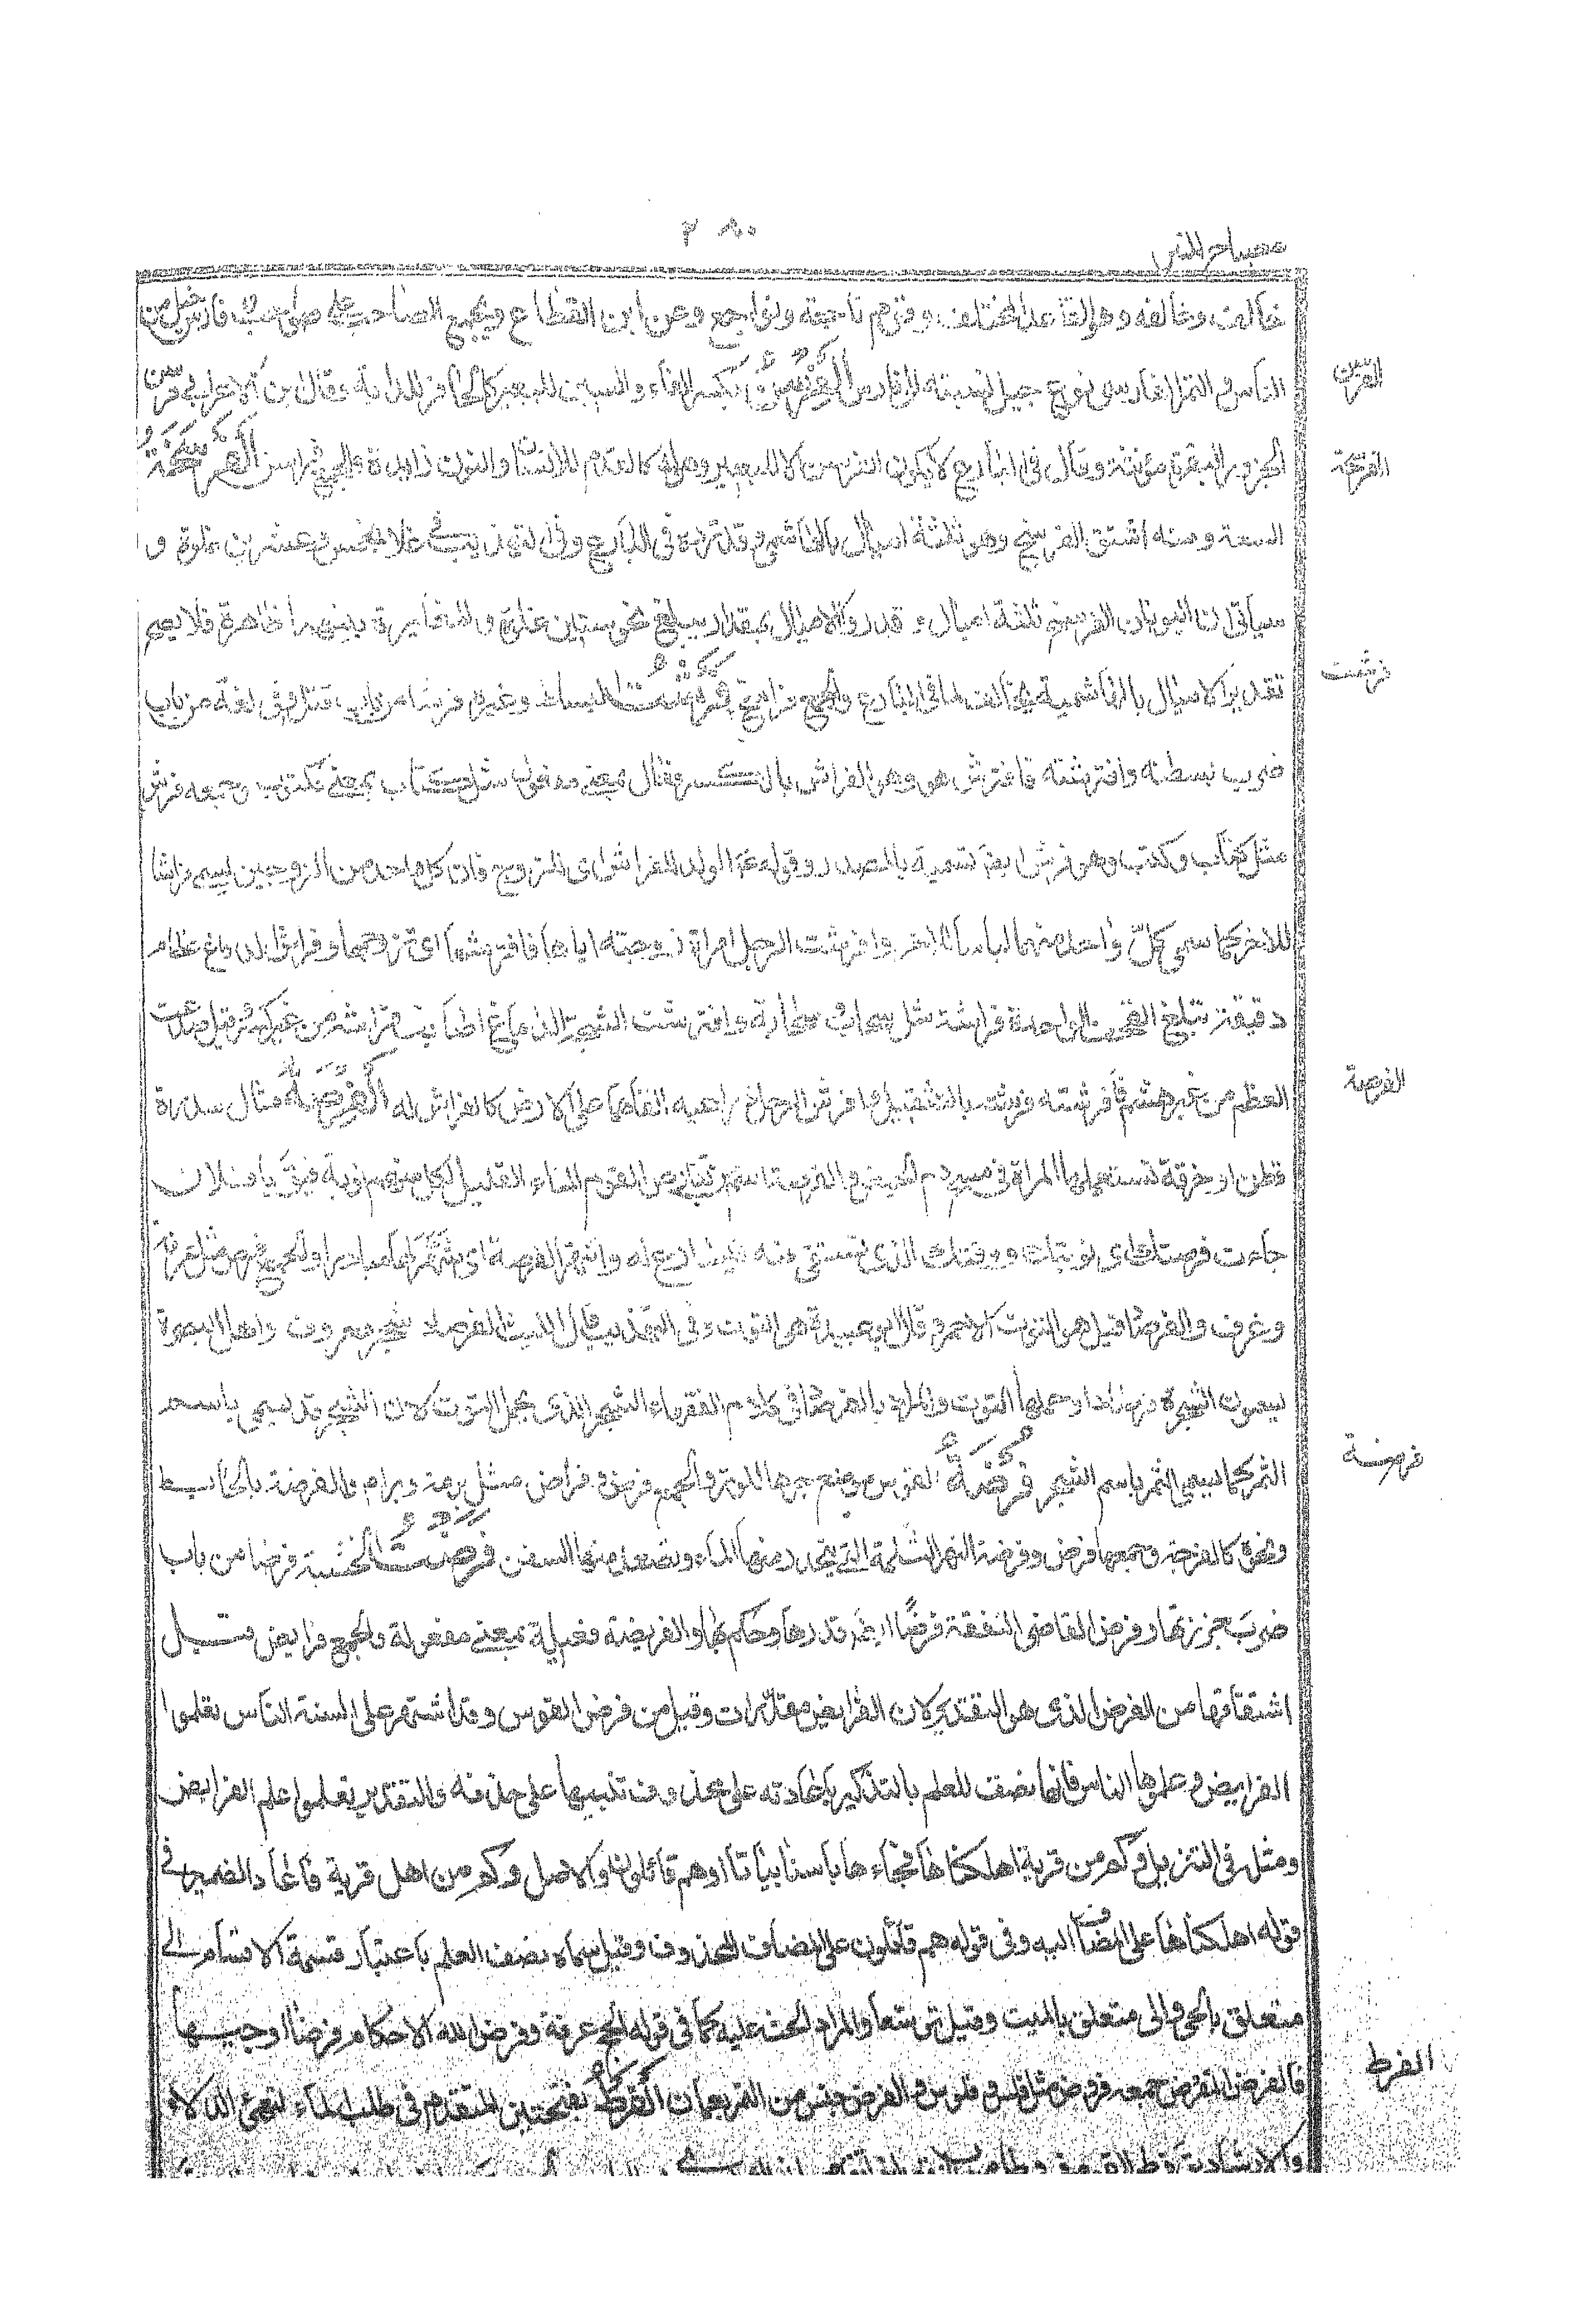 ٣٨٠
مصباح المنير
خالف وخالفه وهو القاعد المختلف وقوم ناجعة ونواجع وعن ابن القطاع ويجمع الصاحب على صواحب فارس جيل من
الناس والتمر الفارسى نوع جيد نسبته الى فارس الْفِرْسِنُ بكسر الفاء والسين للبعير كالحافر للدابة وقال ابن الاعرابى فرسن
الجزور والبقرة مؤنثة وقال فى البارع لا يكون الفرسن الا للبعير وهى له كالقدم للانسان والنون زايدة والجمع فراسن الْفَرْسَخَةُ
السعة ومنه اشتق الفرسخ وهو ثلثة اميال بالهاشمى وقدره فى البارع وفى التهذيب فى غلا بخمس وعشرين غلوة و
سياتى ان اليونان الفرسخ ثلثة اميال وقدروا الاميال بمقدار يبلغ نحو ستين غلوة والمغايرة بينهما ظاهرة فلا يصح
تقدير الاميال بالهاشمية يخالف لما فى البارع والجمع فراسخ فَرَشْتُ البساط وغيره فرشا من باب قتل وفى لغة من باب
ضرب بسطته وافترشته فافترش هو وهو الفراش بالكسر فعال بمعنى مفعول مثل كتاب بمعنى مكتوب وجمعه فرش
مثل كتاب وكتب وهو فرش ايضا تسمية بالمصدر وقوله ع الولد للفراش اى للزوج فان كل واحد من الزوجين يسمى فراشا
للاخر كما سمى كل واحد منهما لباسا للاخر وافرشت الرجل امراة زوجته اياها فافترشها اى تزوجها وفراش الدماغ عظام
دقيقة تبلغ القحف الواحدة فراشة مثل سحاب وسحابة وافترشت الشجة الدماغ اطارت فراشه من غير كسر وقيل صدعت
العظم من غير هشم وافرشته وفرشت بالتثقيل وافترش الرجل ذراعيه القاهما على الارض كالفراش له الْفِرْصَةُ مثال سدرة
قطن او خرقة تستعملها المراة فى مسح دم الحيض والفرصة اسم من تفارص القوم الماء القليل لكل منهم نوبة فيق يا فلان
جاءت فرصتك اى نوبتك ووقتك الذى تستقى فيه فيسارع له وانتهز الفرصة اى شمر لها مبادرا والجمع فرص مثل غرفة
وغرف والفرصاد قيل هو التوت الاحمر وقال ابو عبيدة هو التوت وفى التهذيب قال الليث الفرصاد شجر معروف واهل البصرة
يسمون الشجرة فرصادا وحملها التوت والمراد بالفرصاد فى كلام الفقهاء الشجر الذى يحمل التوت لان الشجر قد يسمى باسم
الثمر كما يسمى الثمر باسم الشجر فُرْضَةُ القوس موضع حزها للوتر والجمع فرض وفراض مثل برمة وبرام والفرضة بالحايط
ونحوه كالفرجة وجمعها فرض وفرضة النهر الثلمة التى ينحدر منها الماء وتصعد منها السفن فَرَضْتُ الخشبة فرضا من باب
ضرب حززتها وفرض القاضى النفقة فرضًا ايضا قدرها وحكم بها والفريضة فعيلة بمعنى مفعولة والجمع فرايض قيل
اشتقاقها من الفرض الذى هو التقدير لان الفرايض مقدرات وقيل من فرض القوس وقد اشتهر على السنة الناس تعلموا
الفرايض وعلموها الناس فانها نصف العلم بالتذكير باعادته على محذوف تنبيها على حذفه والتقدير تعلموا علم الفرايض
ومثله فى التنزيل وكم من قرية اهلكناها فجاءها باسنا بياتا او هم قائلون والاصل وكم من اهل قرية فاعاد الضمير فى
قوله اهلكناها على المضاف اليه وفى قوله هم قائلون على المضاف المحذوف وقيل سماه نصف العلم باعتبار قسمة الاحكام الى
متعلق بالحى والى متعلق بالميت وقيل توسعا والمراد الحث عليه كما فى قوله الحج عرفة وفرض الله الاحكام فرضا اوجبها
فالفرض المفروض جمعه فروض مثل فلس وفلوس والفرض جنس من التمر بعمان الْفَرَطُ بفتحتين المتقدم فى طلب الماء ليهيئ الدلاء
الفرسن
الفرسخة
فرشت
الفرصة
فرضة
الفرط